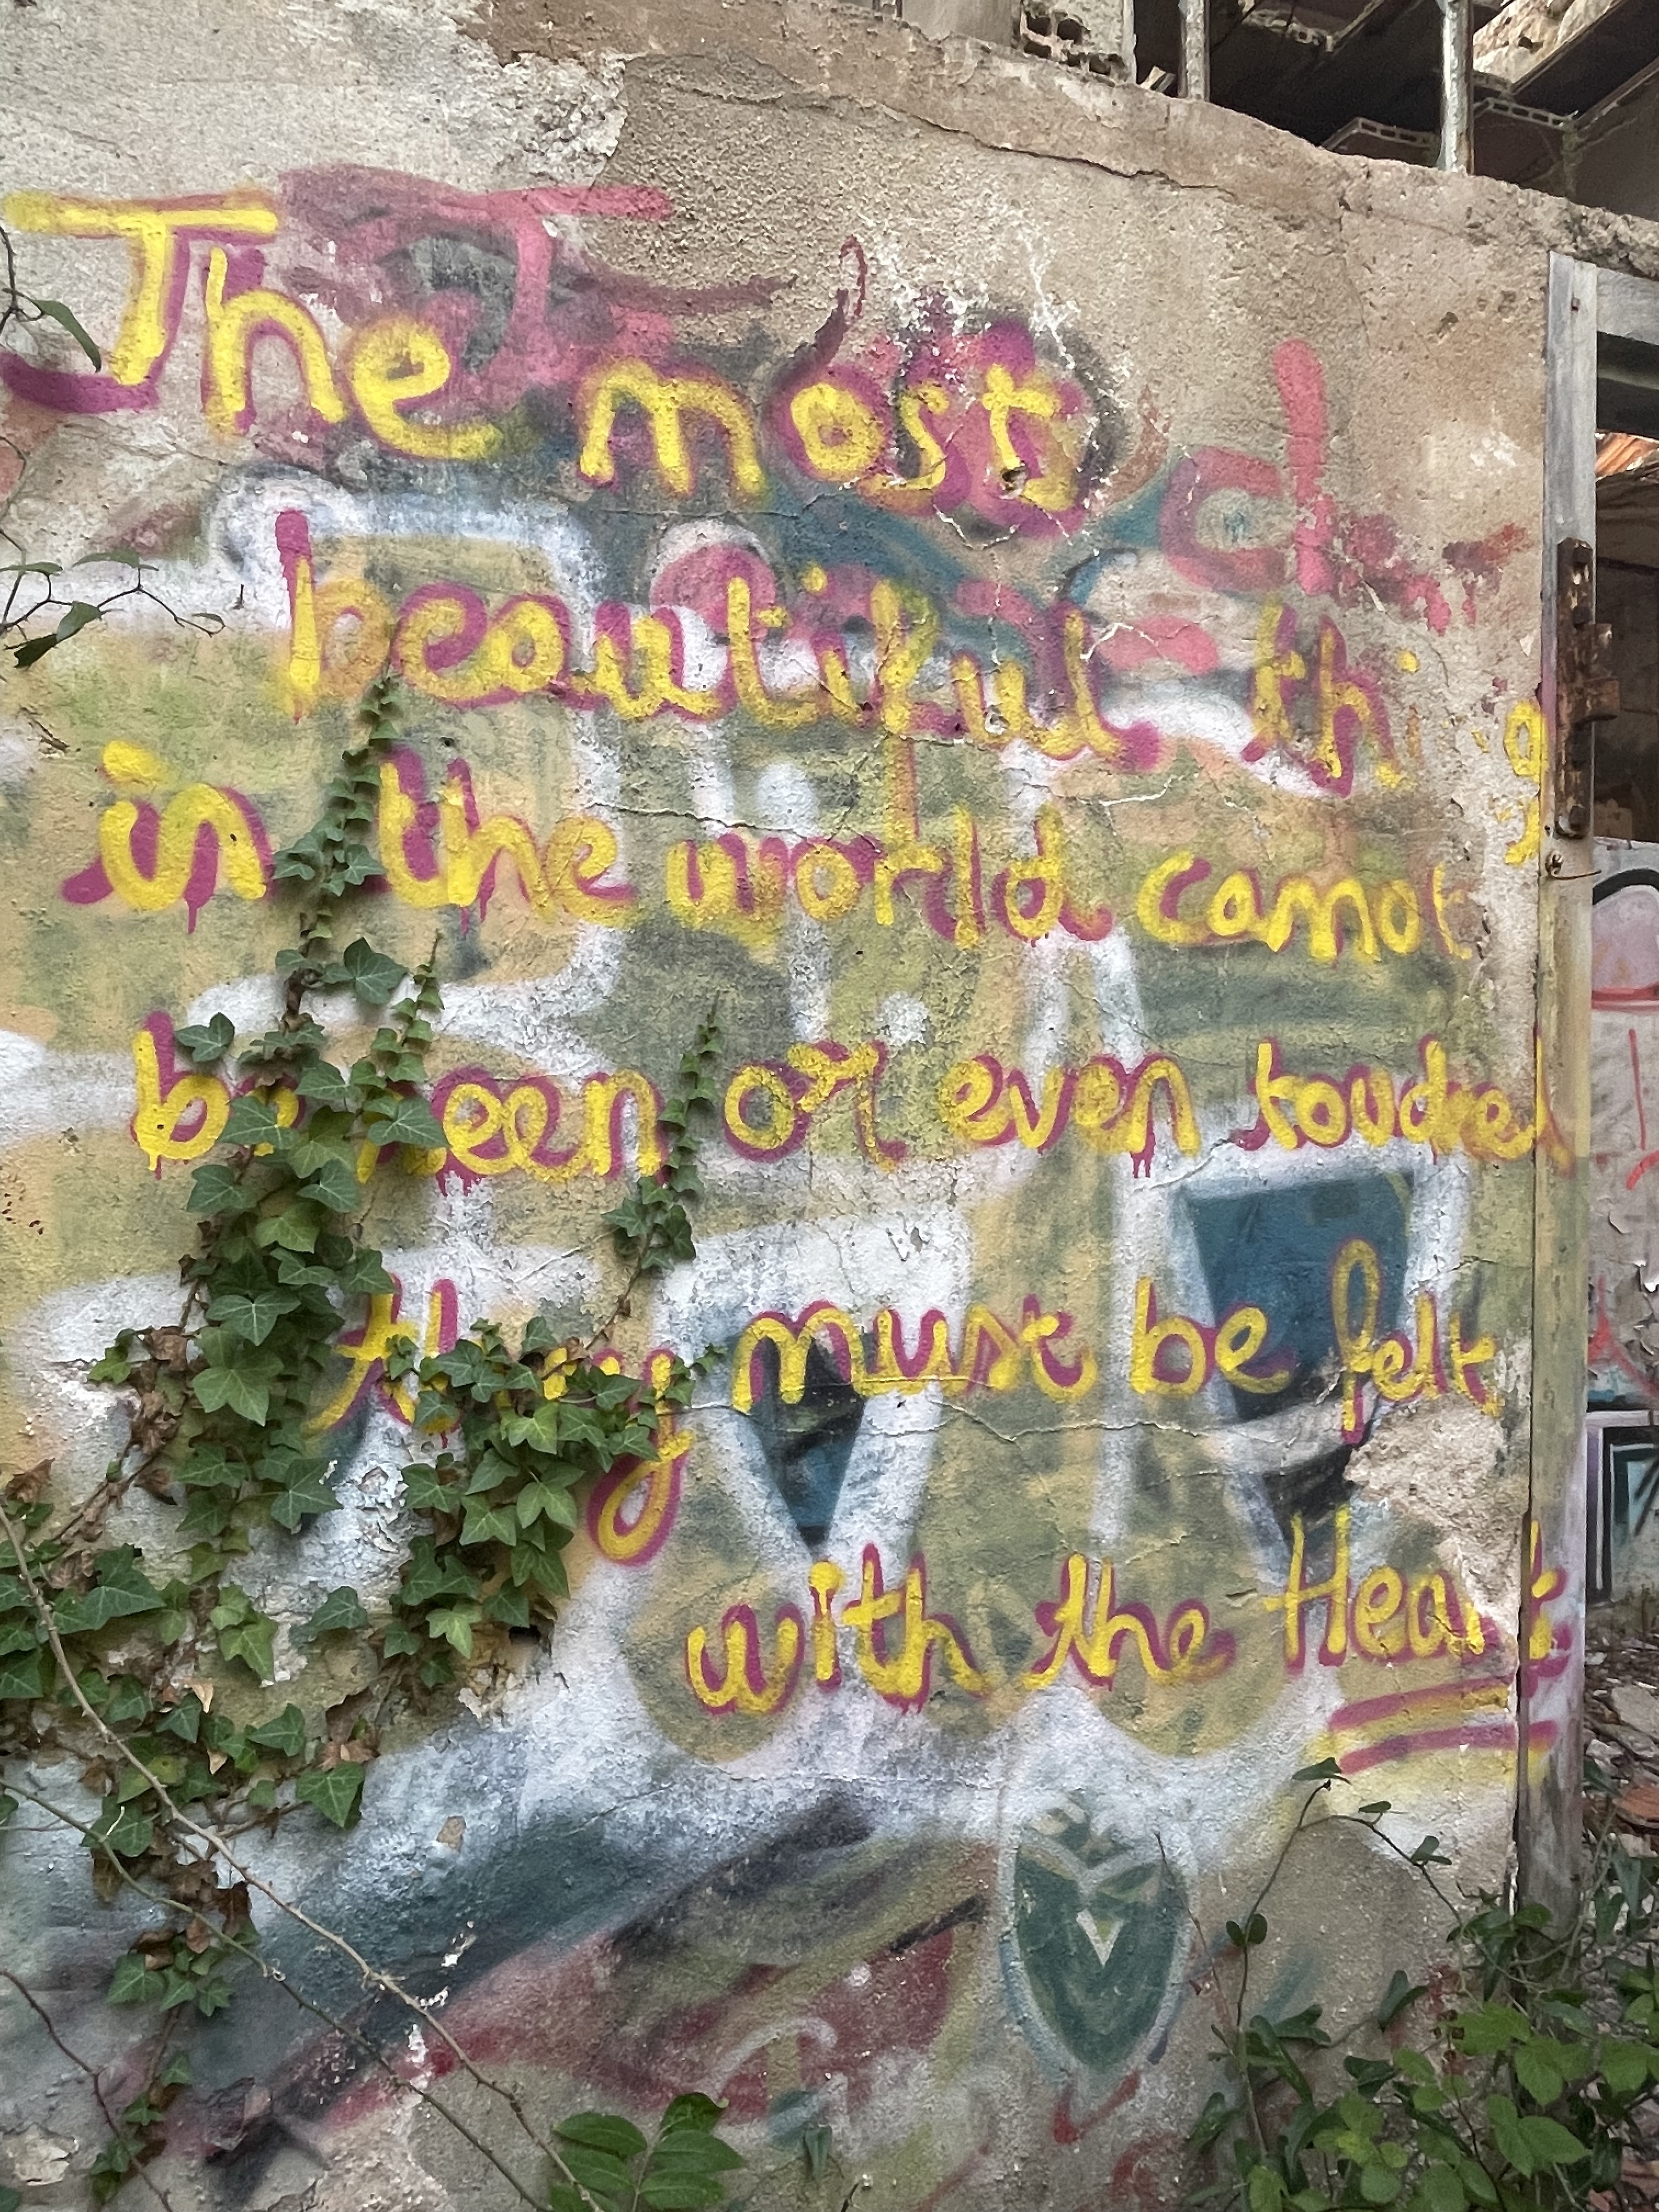 The most
beautiful thi g
in the world cannot
be seen or even touched
they must be felt
with the Heart